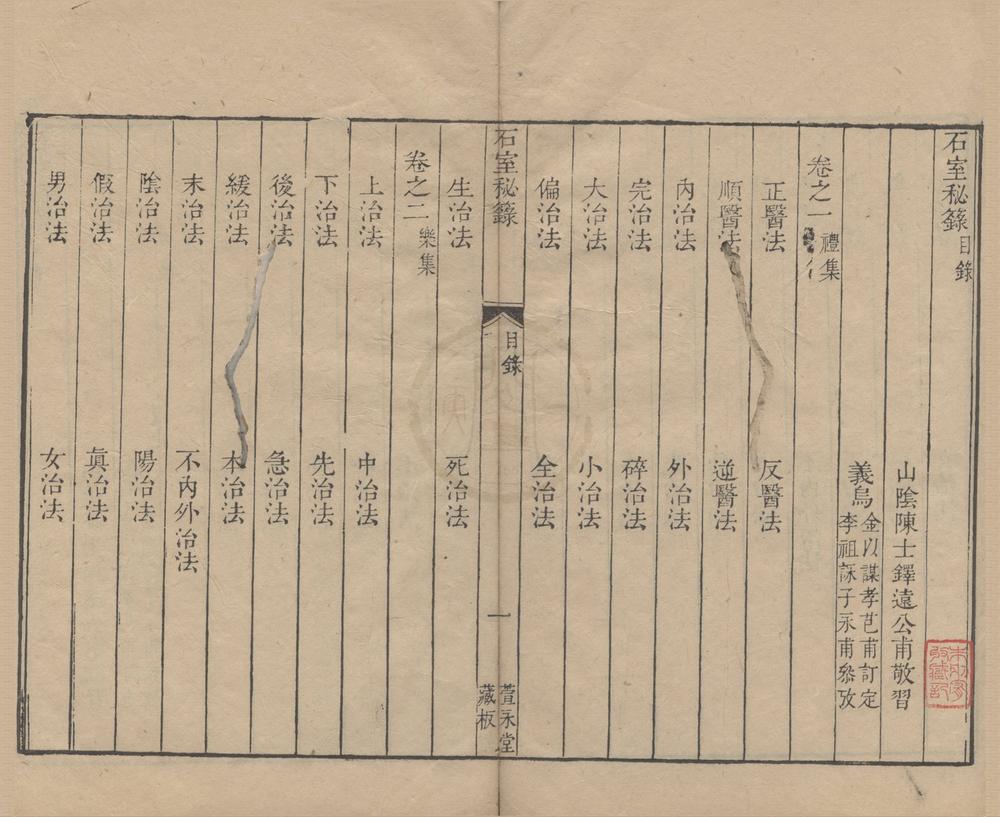 石室秘籙目錄
山陰陳士鐸遠公甫敬習
義烏金以謀孝芑甫訂定
李祖詠子永甫叅攷
卷之一禮集
正醫法 反醫法
順醫法 逆醫法
內治法 外治法
完治法 碎治法
大治法 小治法
偏治法 全治法
石室秘籙 目錄 一 萱永堂藏板
生治法 死治法
卷之二樂集
上治法 中治法
下治法 先治法
後治法 急治法
緩治法 本治法
末治法 不內外治法
陰治法 陽治法
假治法 眞治法
男治法 女治法